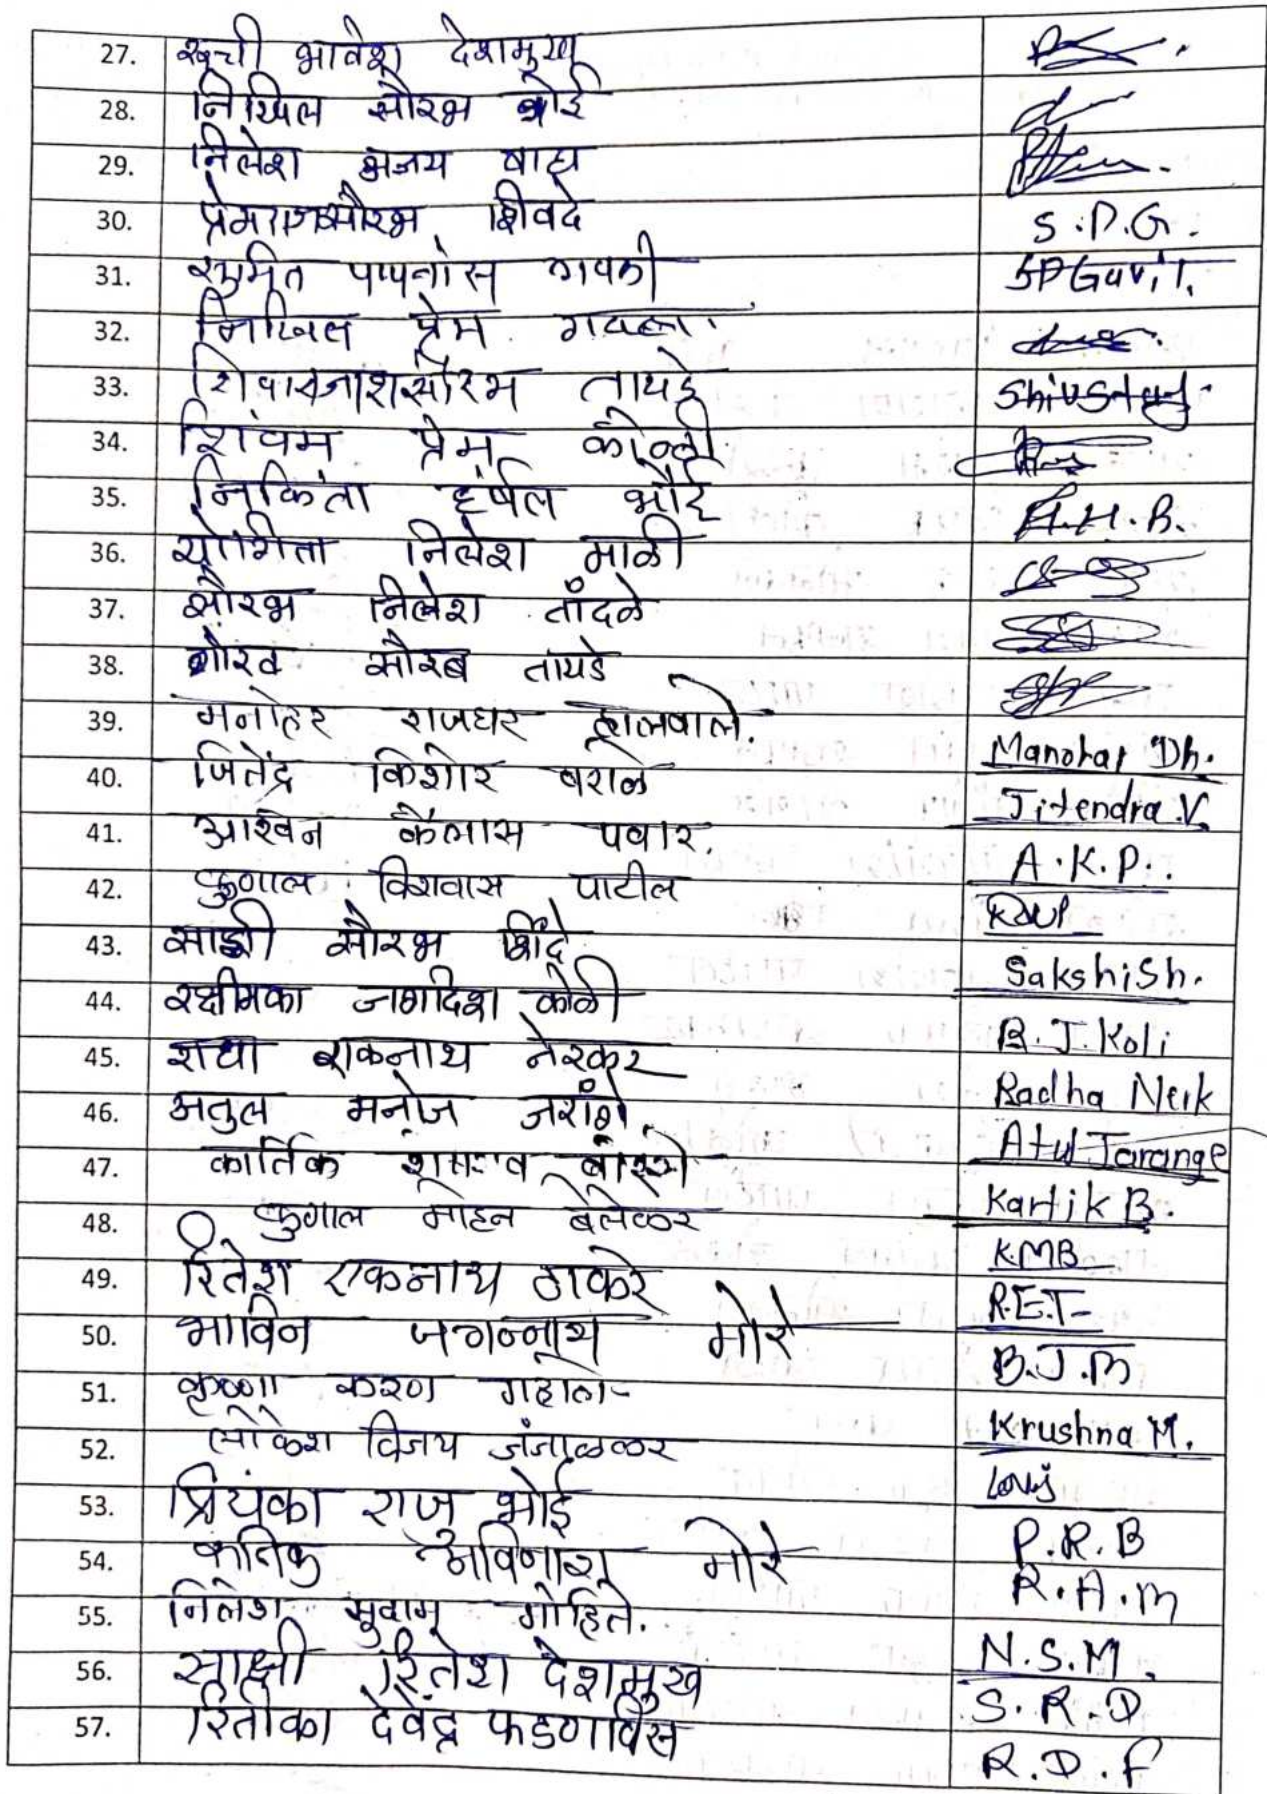 27. रूची भावेश देशमुख
28. निखिल सौरभ भोई
29. निलेश अजय वाघ
30. प्रेमराजसौरभ शिवदे S.P.G.
31. सुमित गावती SPGavit.
32. निखिल प्रेम
33. तायडे
34. शिवम प्रेम कोळी
35. निकिता हर्षल भोई H.H.B.
36. योगिता निलेश माळी
37. सौरभ निलेश तांदळे
38. गौरव सौरब तायडे
39. मनोहर राजधर ढालवाले. Manohar Dh.
40. जितेंद्र किशोर वराळे Jitendra.V.
41. आश्विन कैलास पवार. A.K.P.
42. कुणाल विशवास पाटील
43. साक्षी सौरभ शिंदे Sakshi Sh.
44. जगदिश कोळी R.J.Koli
45. राधा एकनाथ नेरकर Radha Nerk
46. अतुल मनोज जरांगे Atul Jarange
47. कार्तिक Kartik B.
48. कुणाल मोहन बेलेकर K.M.B
49. रितेश एकनाथ ठाकरे R.E.T-
50. भाविन जगन्नाथ मोरे B.J.M
51. कृष्णा करण Krushna M.
52. लोकेश विजय जंजाळकर
53. प्रियंका राजु भोई P.R.B
54. अविनाश मोरे R.A.M
55. निलेश सुदाम मोहिते. N.S.M.
56. साक्षी रितेश देशमुख S.R.D
57. रितीका देवेंद्र फडणविस R.D.F